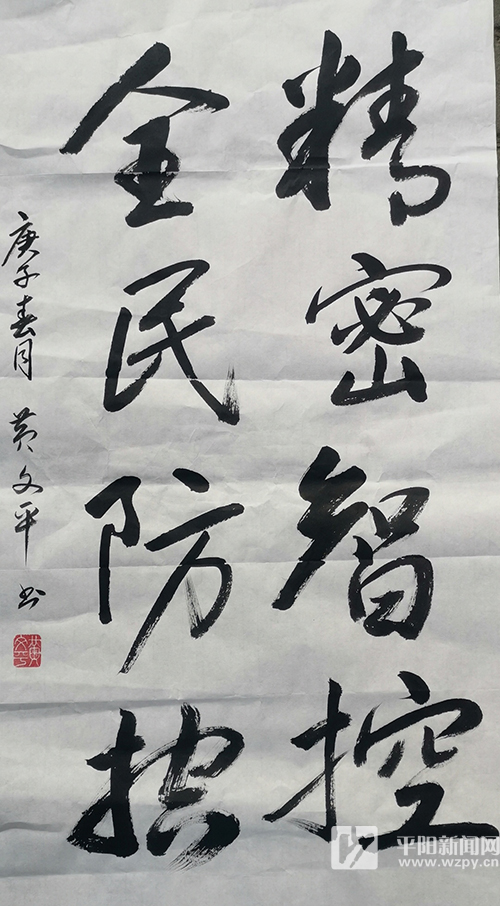 精密智控
全民防控
庚子春月 黄文平书
平阳新闻网
www.wzpy.cn